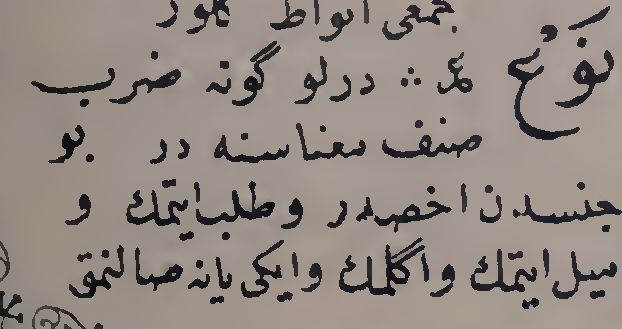 جمعى انواط كلور
نوع عم ∴ درلو گونه ضرب
صنف معناسنه در بو
جنسدن اخصدر و طلب ايتمك و
ميل ايتمك و اگلمك و ايكى يانه صالنمق